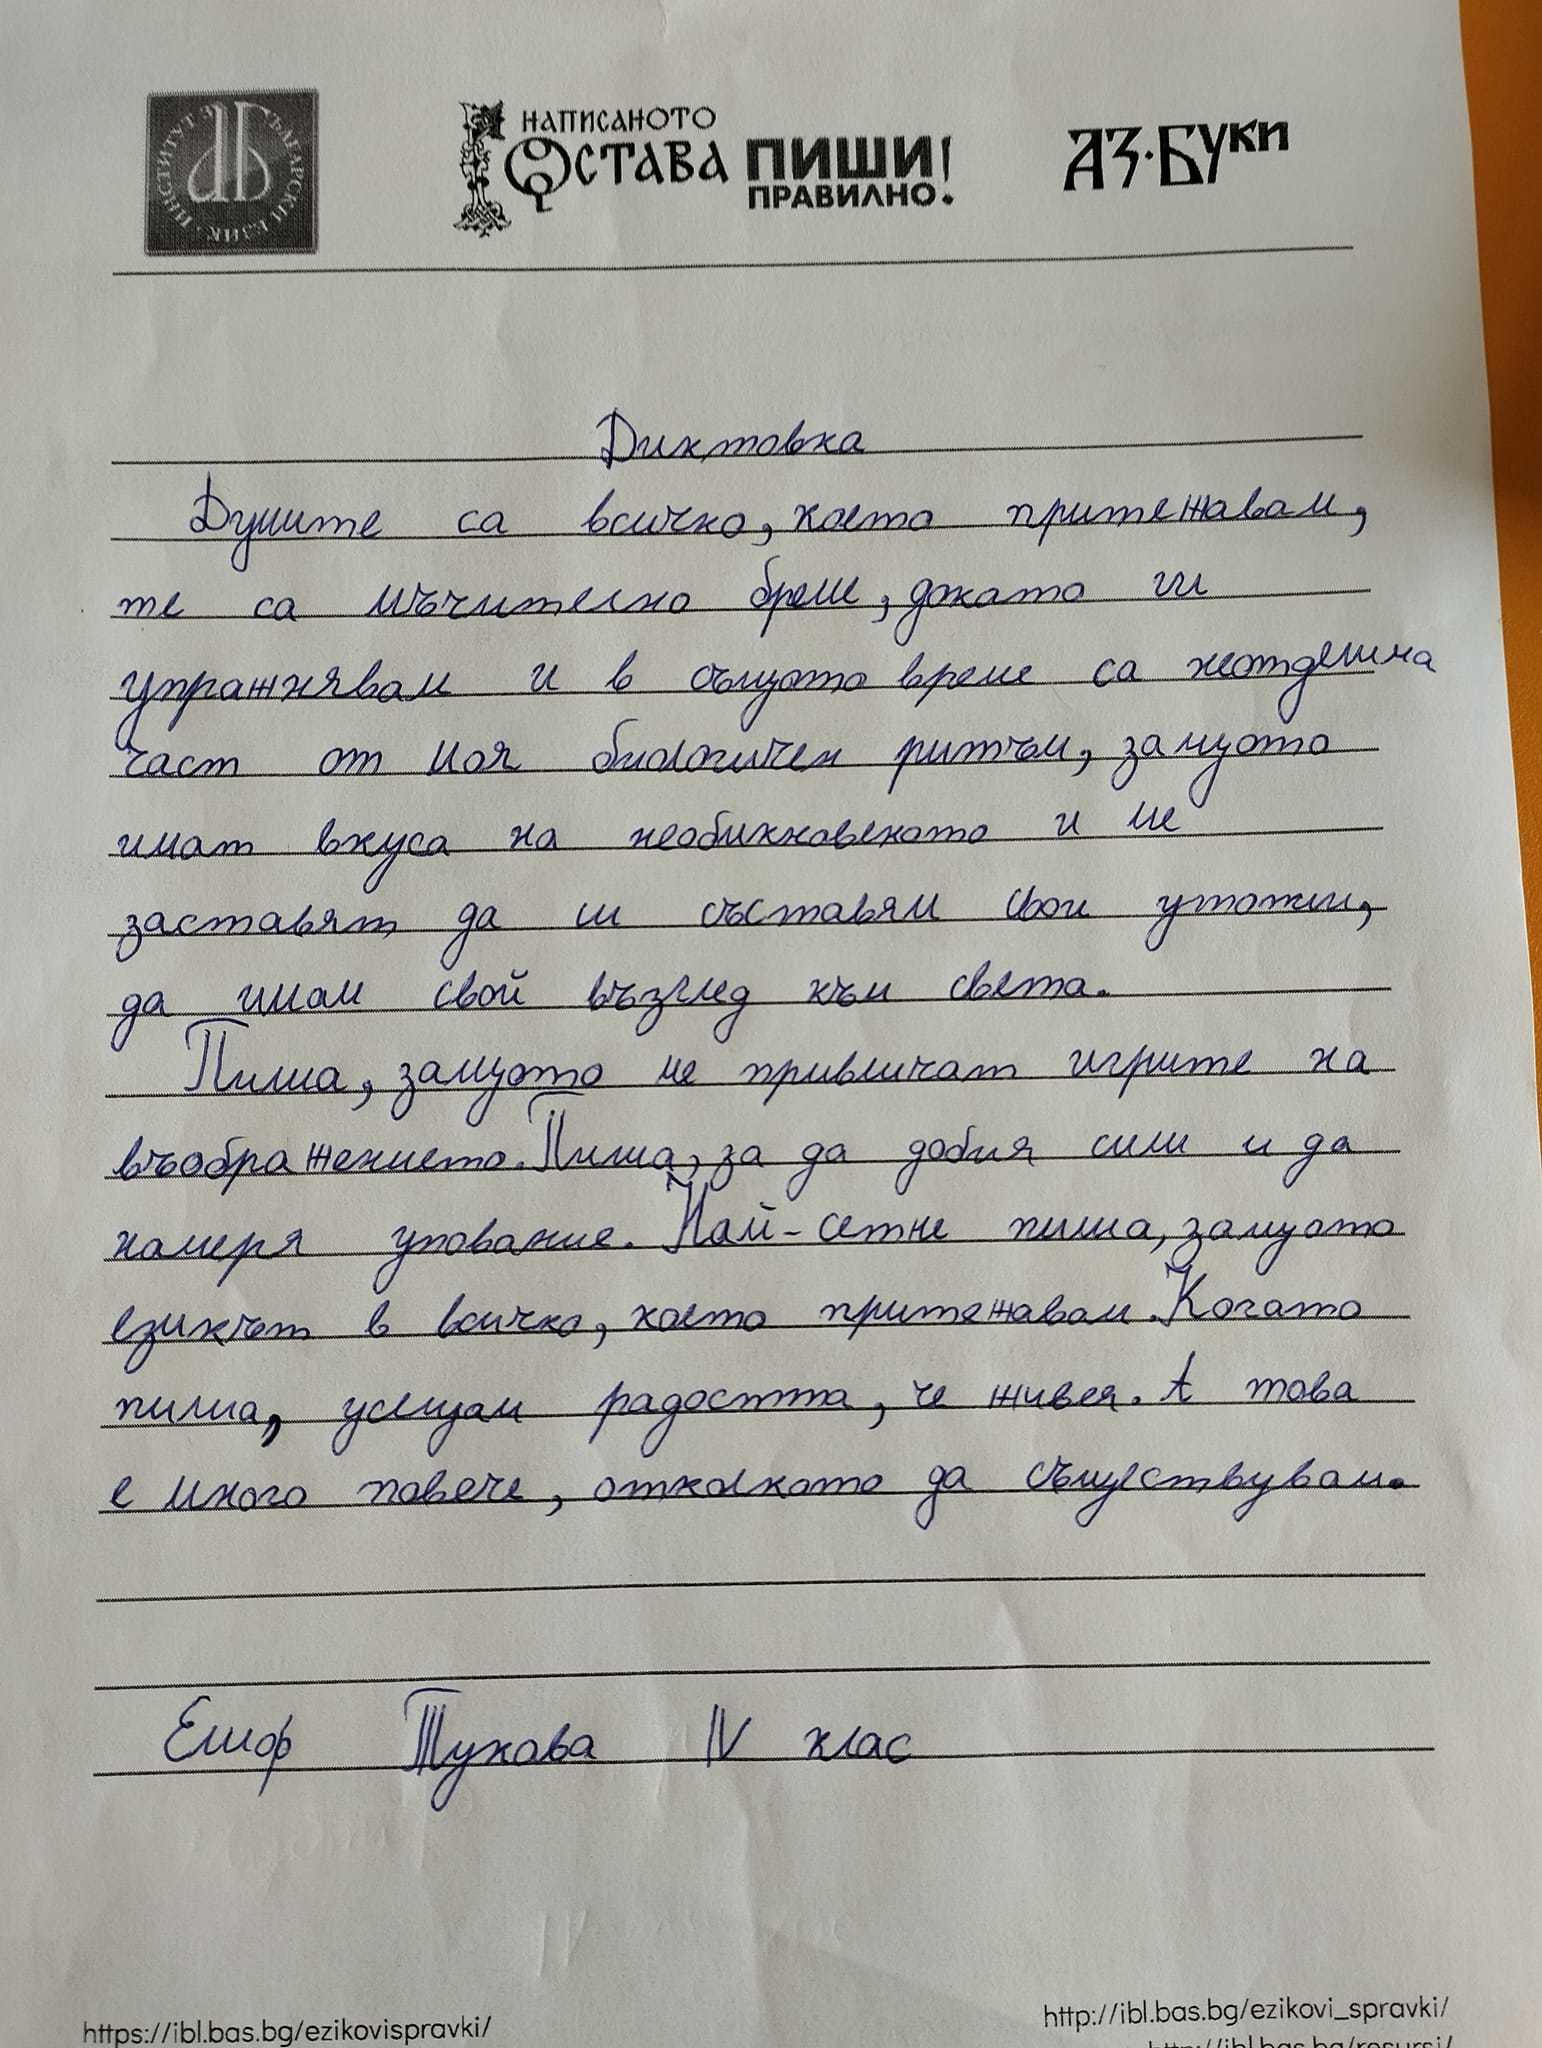 ИНСТИТУТ ЗА БЪЛГАРСКИ ЕЗИК
НАПИСАНОТО
ОСТАВА ПИШИ
ПРАВИЛНО!
АЗ·БУКИ
Диктовка
Думите са всичко, което притежавам,
те са мъчително бреме, докато ги
упражнявам и в същото време са неотделима
част от моя биологичен ритъм, защото
имат вкуса на необикновеното и ме
заставят да си съставям свои утопии,
да имам свой възглед към света.
Пиша, защото ме привличат игрите на
въображението. Пиша, за да добия сили и да
намеря упование. Най-сетне пиша, защото
езикът в всичко, което притежавам. Когато
пиша, усещам радостта, че живея. А това
е много повече, отколкото да съществувам.
Елиф Тукова IV клас
https://ibl.bas.bg/ezikovispravki/
http://ibl.bas.bg/ezikovi_spravki/
http://ibl.bas.bg/resursi/